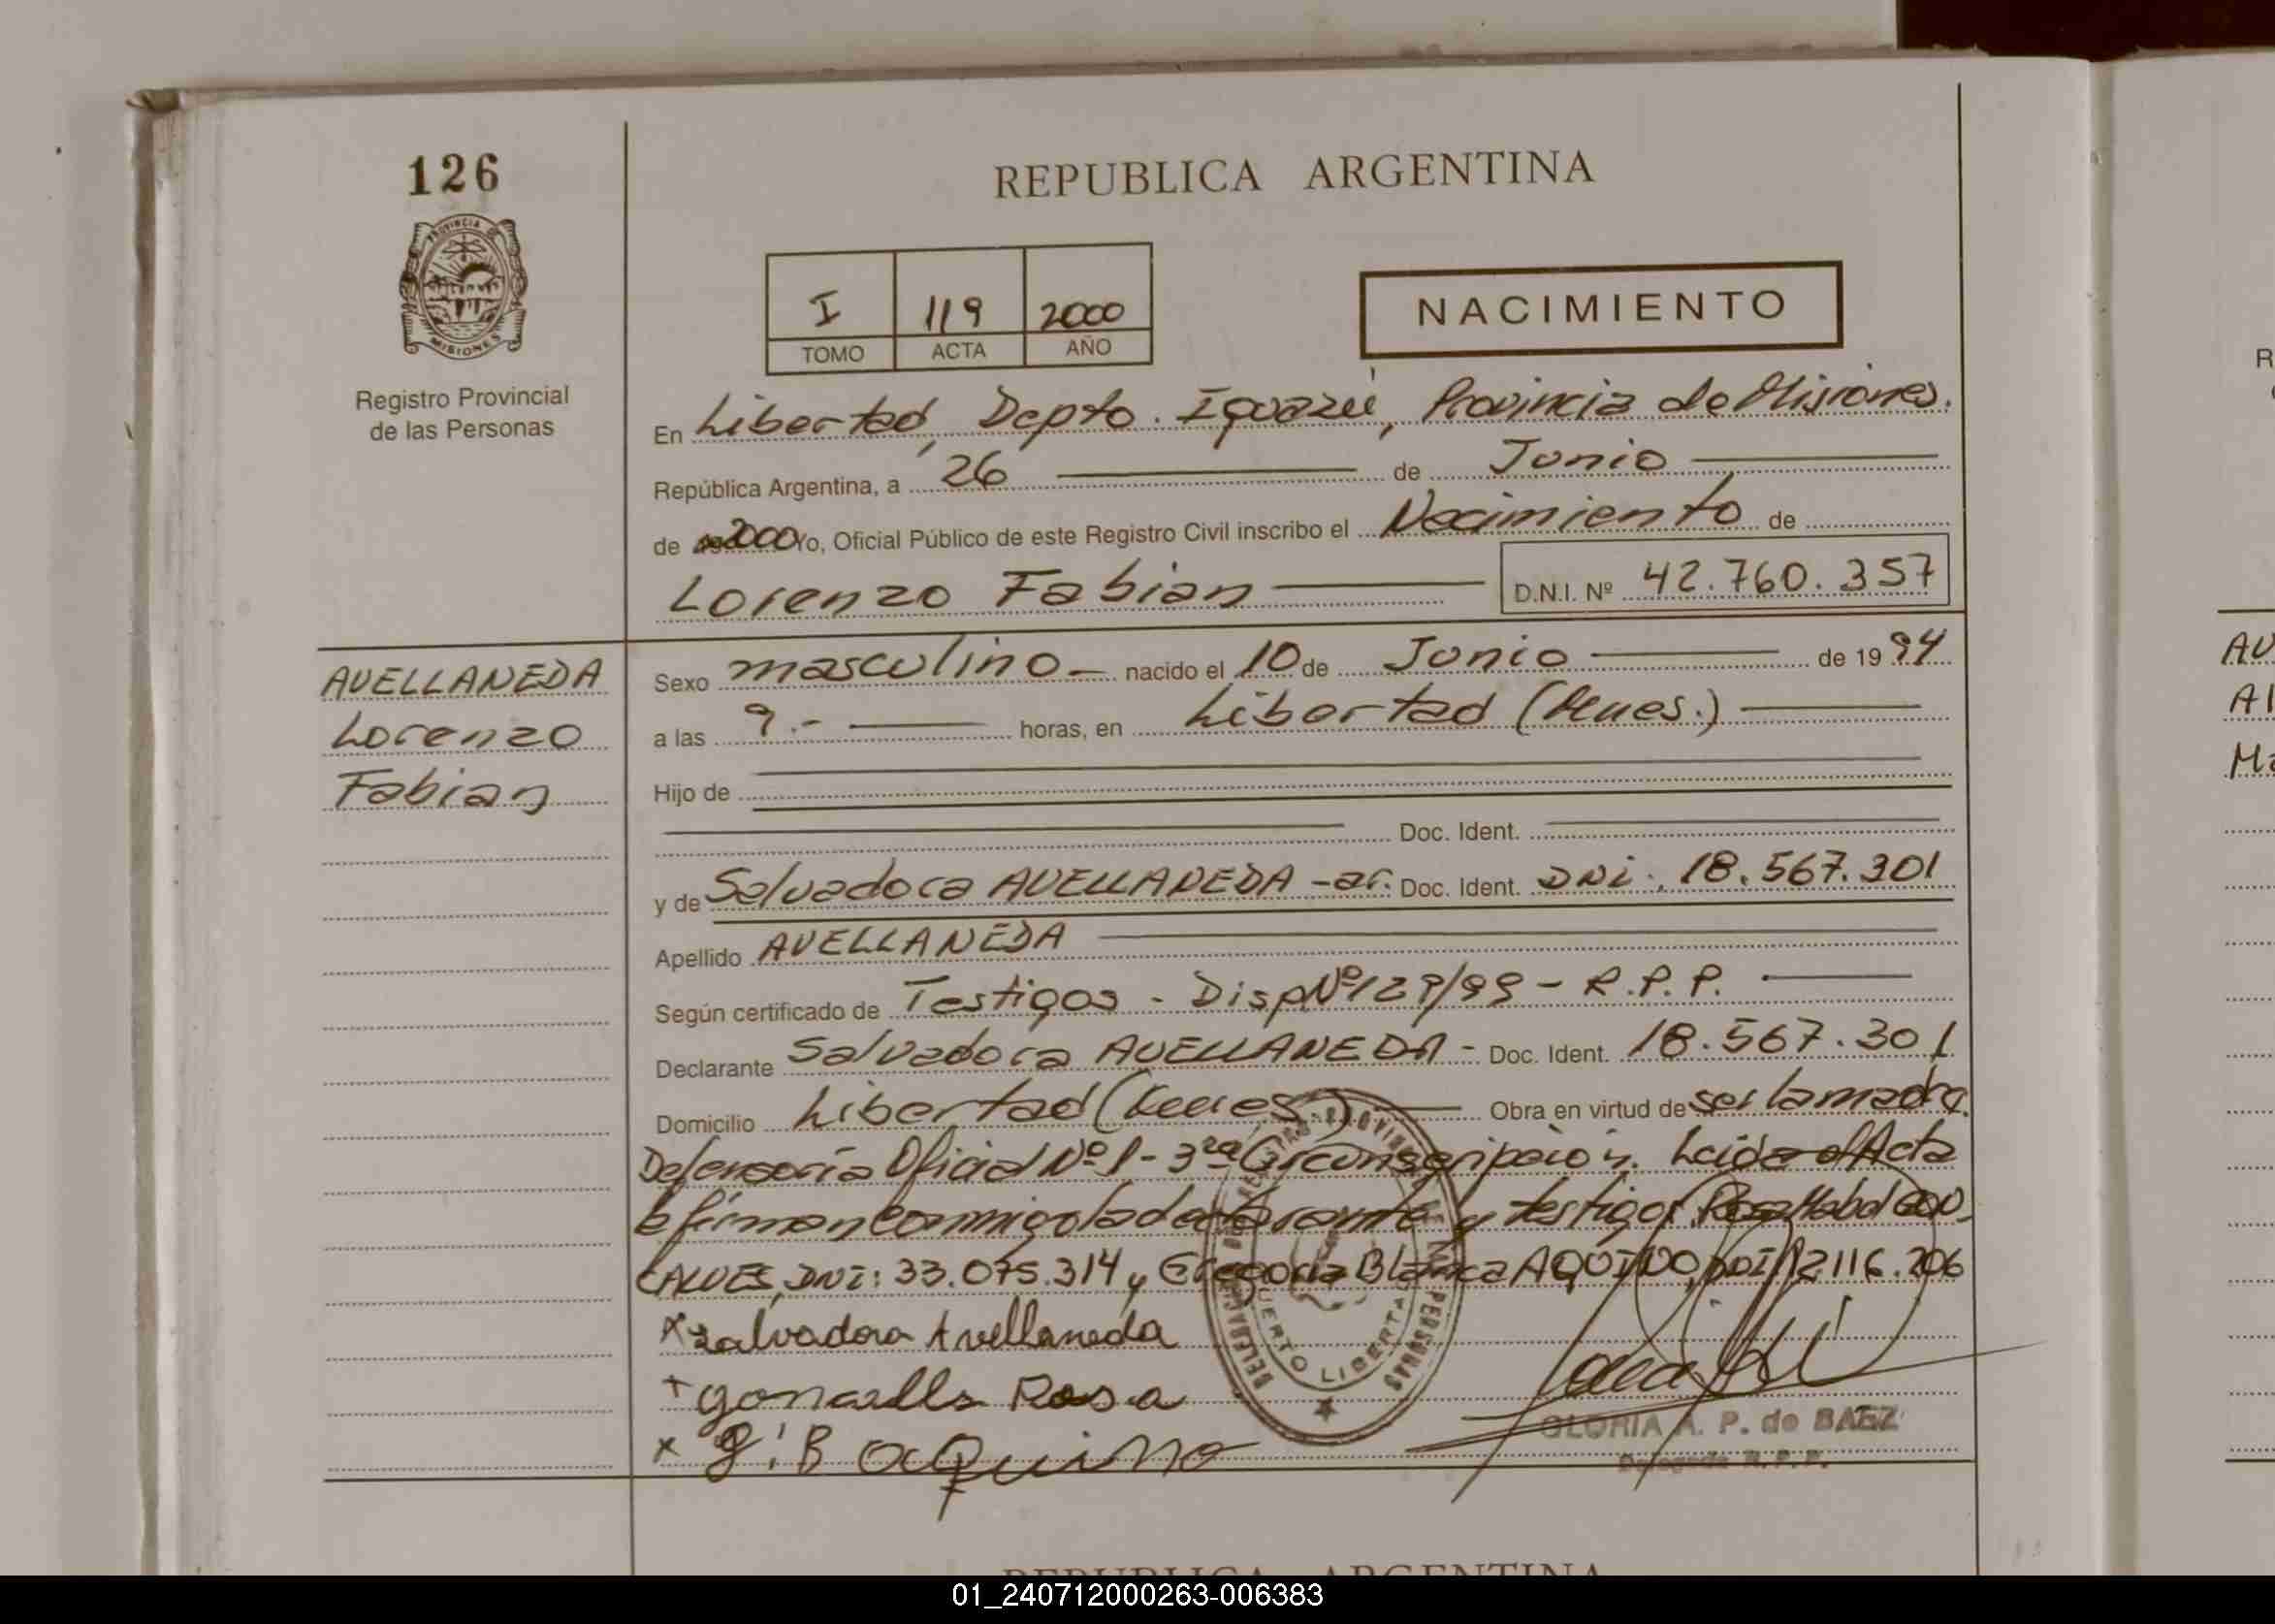 126
PROVINCIA DE
MISIONES
Registro Provincial
de las Personas
REPUBLICA ARGENTINA
I 119 2000
TOMO ACTA AÑO
NACIMIENTO
En Libertad, Depto. Iguazú, Provincia de Misiones.
República Argentina, a 26 de Junio
de 2000 Yo, Oficial Público de este Registro Civil inscribo el Nacimiento de
Lorenzo Fabian D.N.I. Nº 42.760.357
AVELLANEDA
Lorenzo
Fabian
Sexo masculino nacido el 10 de Junio de 1994
a las 9.- horas, en Libertad (Mnes.)
Hijo de
Doc. Ident.
y de Salvadora AVELLANEDA -ar. Doc. Ident. DNi. 18.567.301
Apellido AVELLANEDA
Según certificado de Testigos - Disp Nº 129/99 - R.P.P.
Declarante Salvadora AVELLANEDA - Doc. Ident. 18.567.301
Domicilio Libertad (Mnes.) Obra en virtud de ser la madre.
Defensoría Oficial Nº 1 - 3ra Circonscripción. Leida el Acta
la firman conmigo la declarante y testigos Rosa Mabel GON
CALVES, DNI: 33.075.314 y Gregoria Blanca AQUINO, DNI 12116.206
x Salvadora Avellaneda
+ goncalls Rosa
x g. B aquino
PUERTO LIBERTAD
GLORIA A. P. de BAEZ
Delegada R.P.P.
REPUBLICA ARGENTINA
R
AV
Al
Ma
01_240712000263-006383